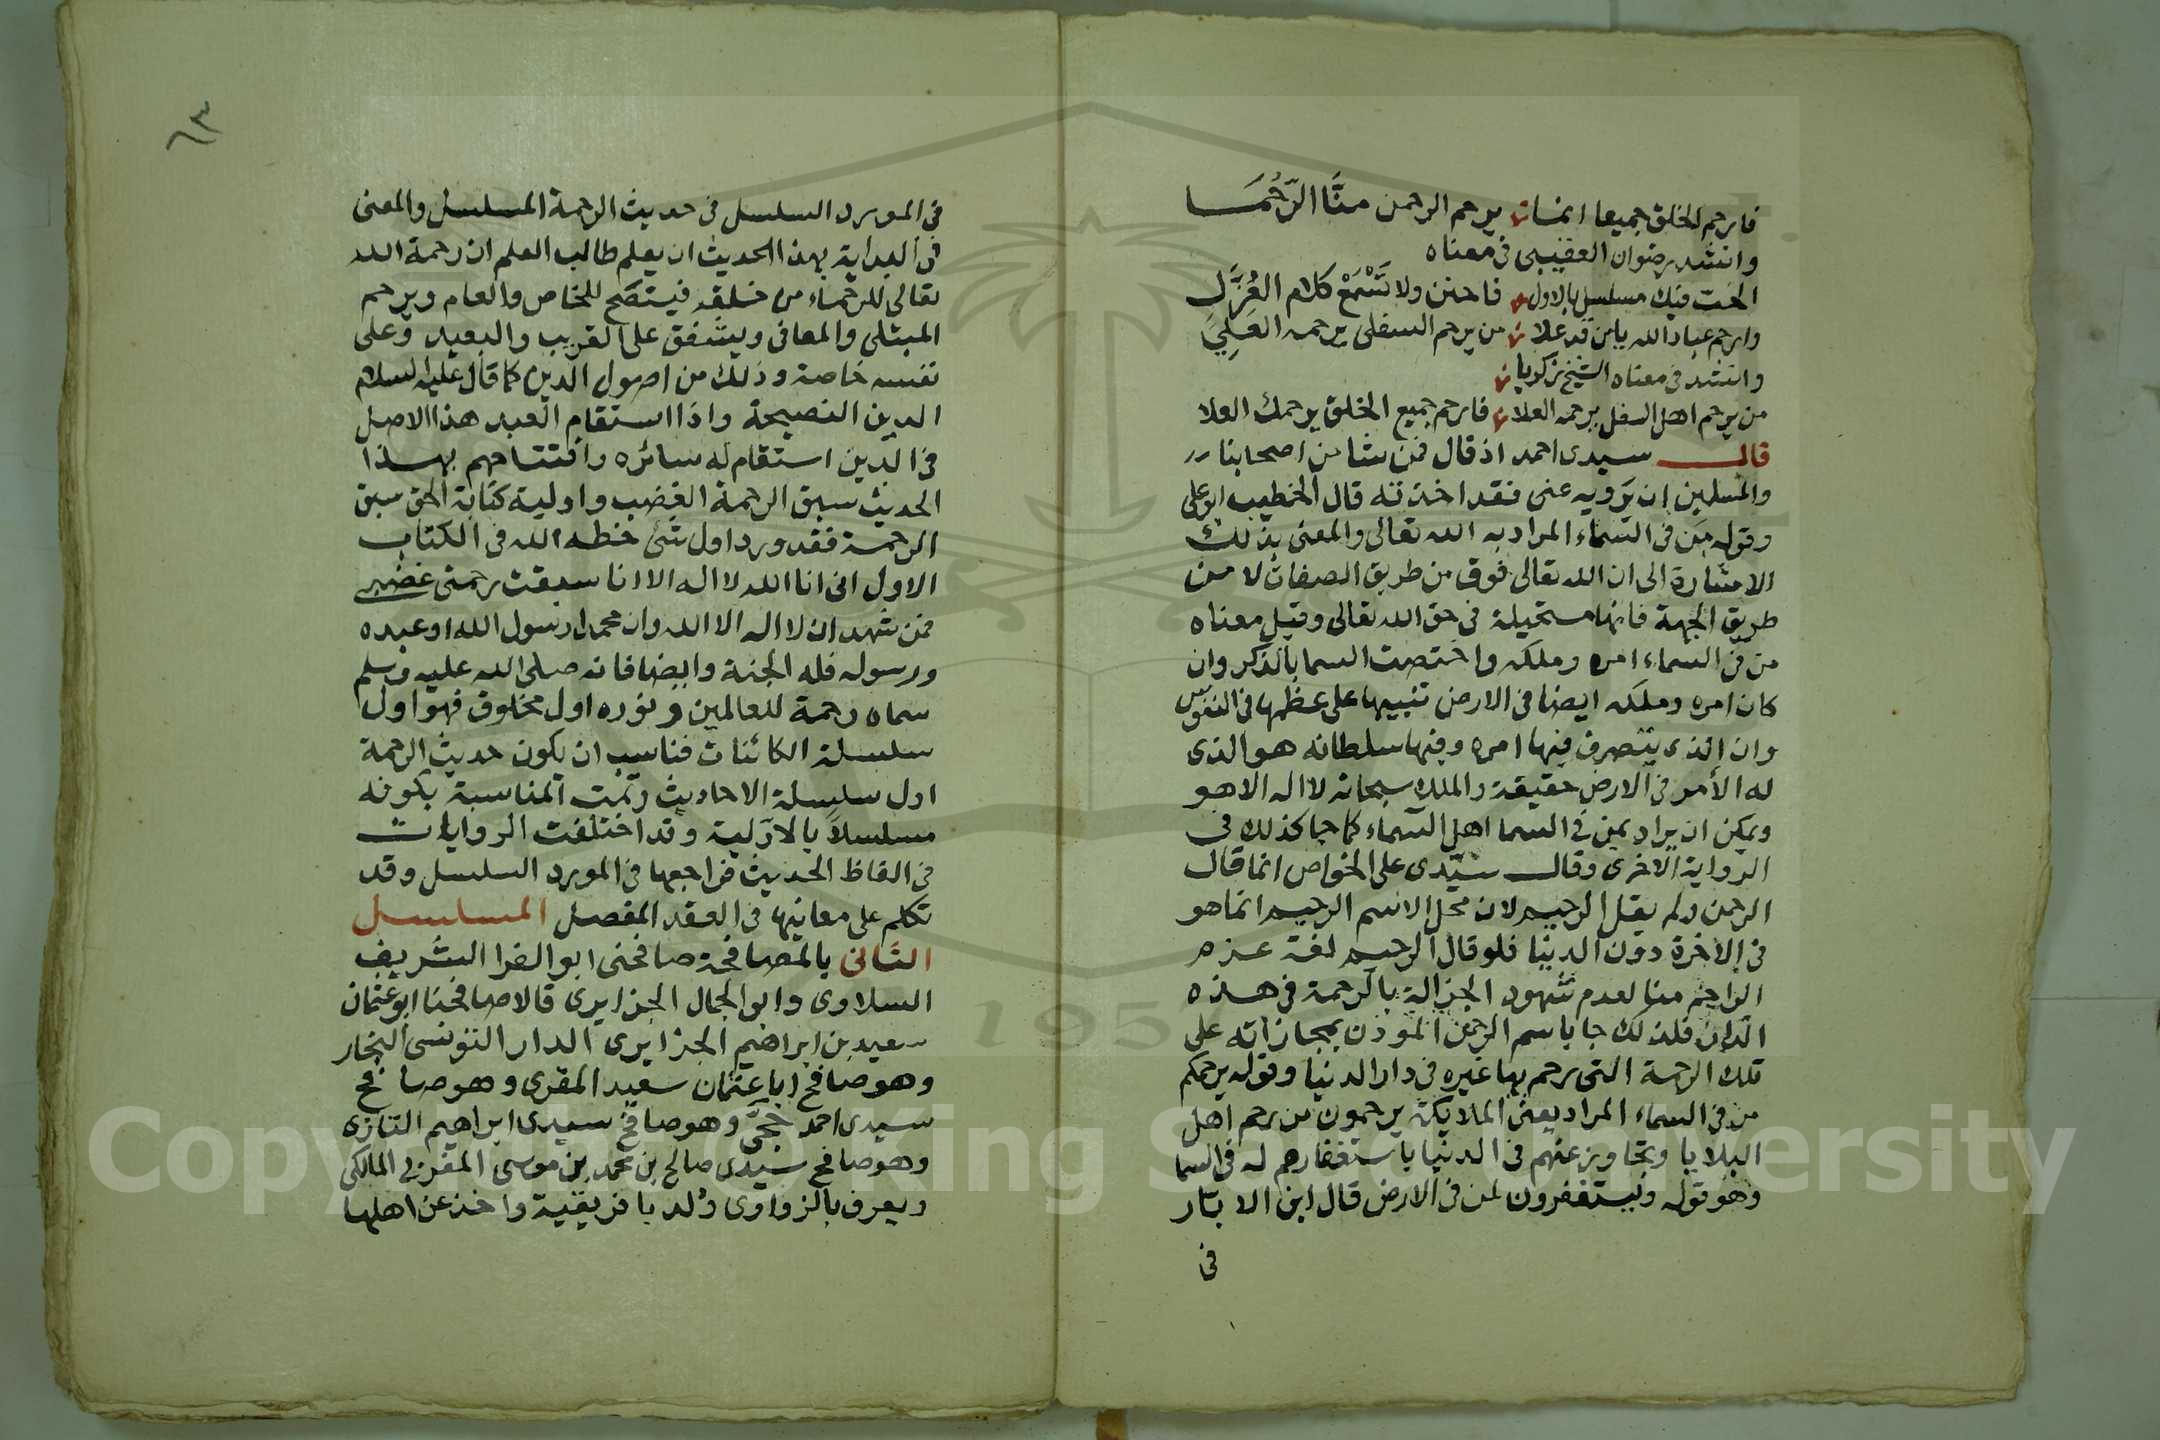 فارحم الخلق جميعا انما يرحم الرحمن منا الرحما
وانشد رضوان العقبي فى معناه
الحب فيك مسلسل بالاول فاحنن ولا تسمع كلام العزل
وارحم عباد الله يا من قد علا من يرحم السفلى يرحمه العلي
وانشد فى معناه الشيخ زكريا
من يرحم اهل السفل يرحمه العلا فارحم جميع الخلق يرحمك العلا
قال سيدى احمد اذ قال فمن شا من اصحابنا
والمسلمين ان يرويه عنى فقد اذنت له قال الخطيب ابو على
وقوله من فى السماء المراد به الله تعالى والمعنى بذلك
الاشارة الى ان الله تعالى فوق من طريق الصفات لا من
طريق الجهة فانها مستحيلة فى حق الله تعالى وقيل معناه
من فى السماء امره وملكه واختصت السما بالذكر وان
كان امره وملكه ايضا فى الارض تنبيها على عظمها فى النفوس
وان الذى يتصرف فيها امره وفيها سلطانه هو الذى
له الأمر فى الارض حقيقة والملك سبحانه لا اله الا هو
ويمكن ان يراد بمن فى السما اهل السماء كما جا كذلك فى
الرواية الاخرى وقال سيدى على الخواص انما قال
الرحمن ولم يقل الرحيم لان محل الاسم الرحيم انما هو
فى الاخرة دون الدنيا فلو قال الرحيم لفة عزم
الراحم منا لعدم شهود الجزالة بالرحمة فى هذه
الدار فلذلك جا باسم الرحمن الموذن بمجازاته على
تلك الرحمة التى يرحم بها غيره فى دار الدنيا وقوله يرحمكم
من فى السماء المراد يعنى الملايكة يرحمون من رحم اهل
البلايا وتجاوز عنهم فى الدنيا باستغفارهم له فى السما
وهو قوله ويستغفرون لمن فى الارض قال ابن الابار
فى
٦٣
فى المورد السلسل فى حديث الرحمة المسلسل والمعنى
فى البداية بهذا الحديث ان يعلم طالب العلم ان رحمة الله
تعالى للرحماء من خلقه فينصح للخاص والعام ويرحم
المبتلى والمعافى ويشفق على القريب والبعيد وعلى
نفسه خاصة وذلك من اصول الدين كما قال عليه السلام
الدين النصيحة واذا استقام العبد هذا الاصل
فى الدين استقام له سائره وافتتاحهم بهذا
الحديث سبق الرحمة الغضب واولية كتابة الحق سبق
الرحمة فقد ورد اول شئ خطه الله فى الكتاب
الاول انى انا الله لا اله الا انا سبقت رحمتى غضبى
فمن شهد ان لا اله الا الله وان محمدا رسول الله او عبده
ورسوله فله الجنة وايضا فانه صلى الله عليه وسلم
سماه رحمة للعالمين ونوره اول مخلوق فهو اول
سلسلة الكائنات فناسب ان يكون حديث الرحمة
اول سلسلة الاحاديث وتمت المناسبة بكونه
مسلسلا بالاولية وقد اختلفت الروايات
فى الفاظ الحديث فراجعها فى المورد السلسل وقد
تكلم على معانيها فى العقد المفصل المسلسل
الثانى بالمصافحة صافحنى ابو الفرا الشريف
السلاوى وابو الجمال الجزايرى قالا صافحنا ابو عثمان
سعيد بن ابراهيم الجزايرى الدار التونسى النجار
وهو صافح ابا عثمان سعيد المقرى وهو صافح
سيدى احمد حجى وهو صافح سيدى ابراهيم التازى
وهو صافح سيدى صالح بن محمد بن موسى المالكى
ويعرف بالزواوى ولد بافريقية واخذ عن اهلها
Copyright © King Saud University
1957